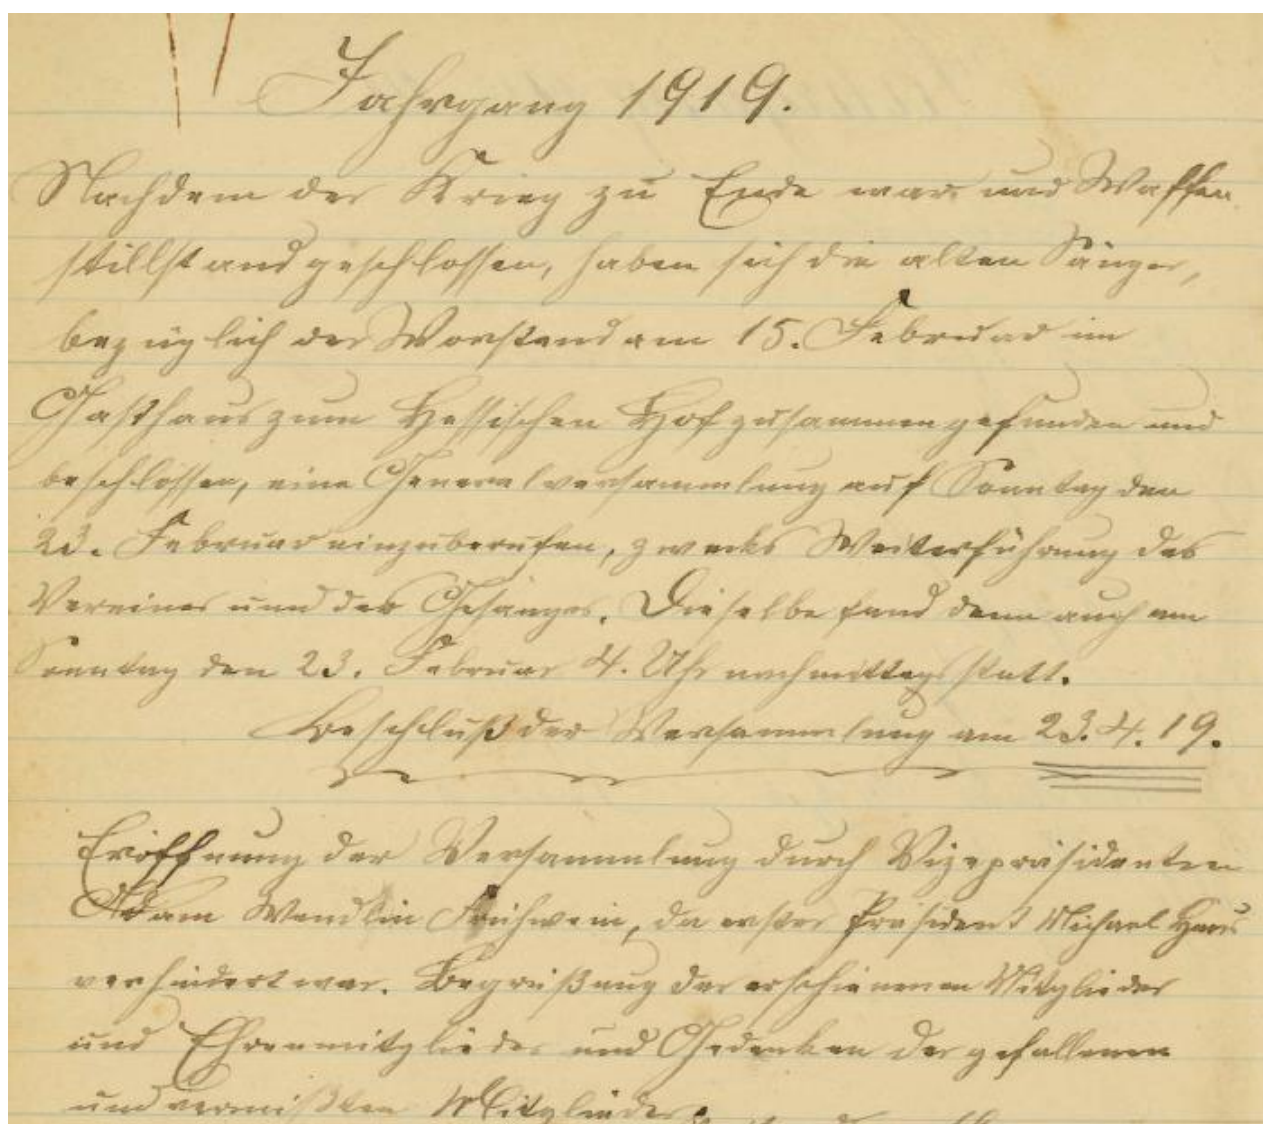 Jahrgang 1919.
Nachdem der Krieg zu Ende war und Waffen
stillstand geschlossen, haben sich die alten Sänger,
bezüglich der Vorstand am 15. Februar im
Gasthaus zum Hessischen Hof zusammengefunden und
beschlossen, eine Generalversammlung auf Sonntag den
23. Februar einzuberufen, zwecks Weiterführung des
Vereines und des Gesanges. Dieselbe fand denn auch am
Sonntag den 23. Februar 4. Uhr nachmittags statt.
Beschluß der Versammlung am 23.4.19.
Eröffnung der Versammlung durch Vizepräsidenten
Adam Wendlin Frühwein, da erster Präsident Michael
verhindert war. Begrüßung der erschienenen Mitglieder
und Ehrenmitglieder und Gedenken der gefallenen
und vermißten Mitglieder.